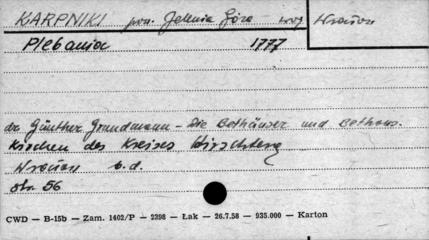 KARPNIKI pow. Jelenia Góra woj. Wrocław
Plebania 1777
dr Günther Grundmann - Die Bethäuser und Bethaus-
kirchen des Kreises Hirschberg
Wrocław b.d.
str. 56
CWD — B-15b — Zam. 1402/P — 2398 — Łak — 26.7.58 — 935.000 — Karton